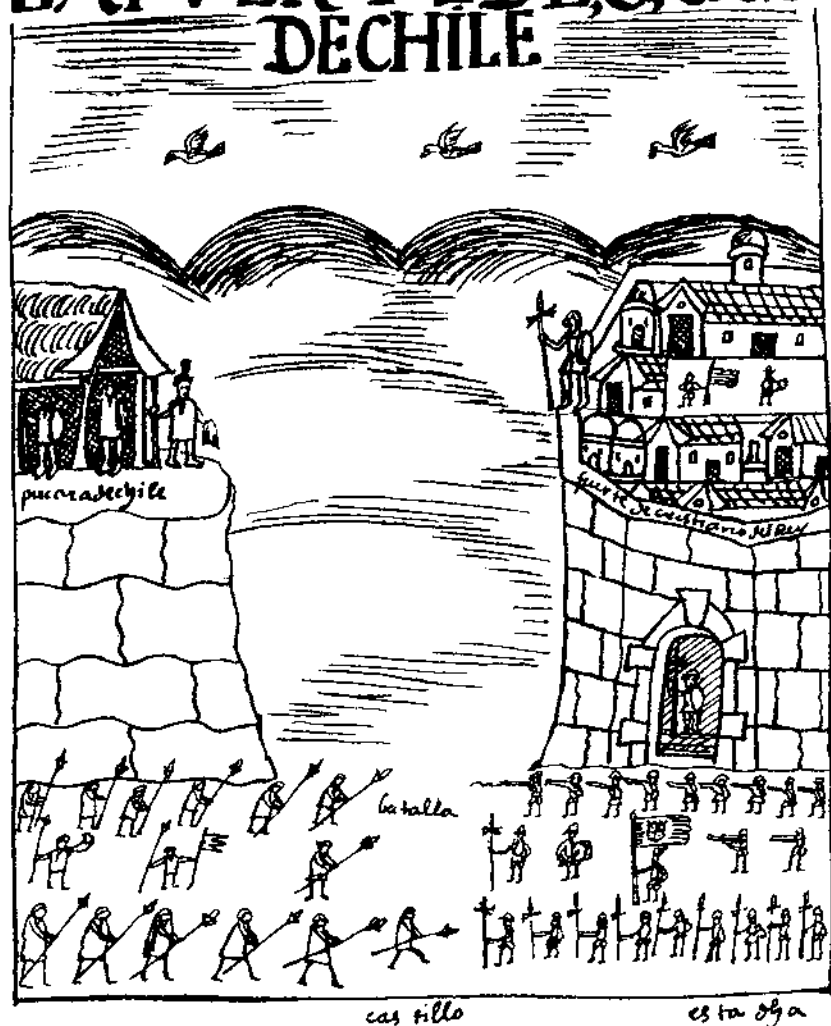 DECHILE
pucaradechile
fuerte de cristiano del Rey
batalla
castillo esta dha